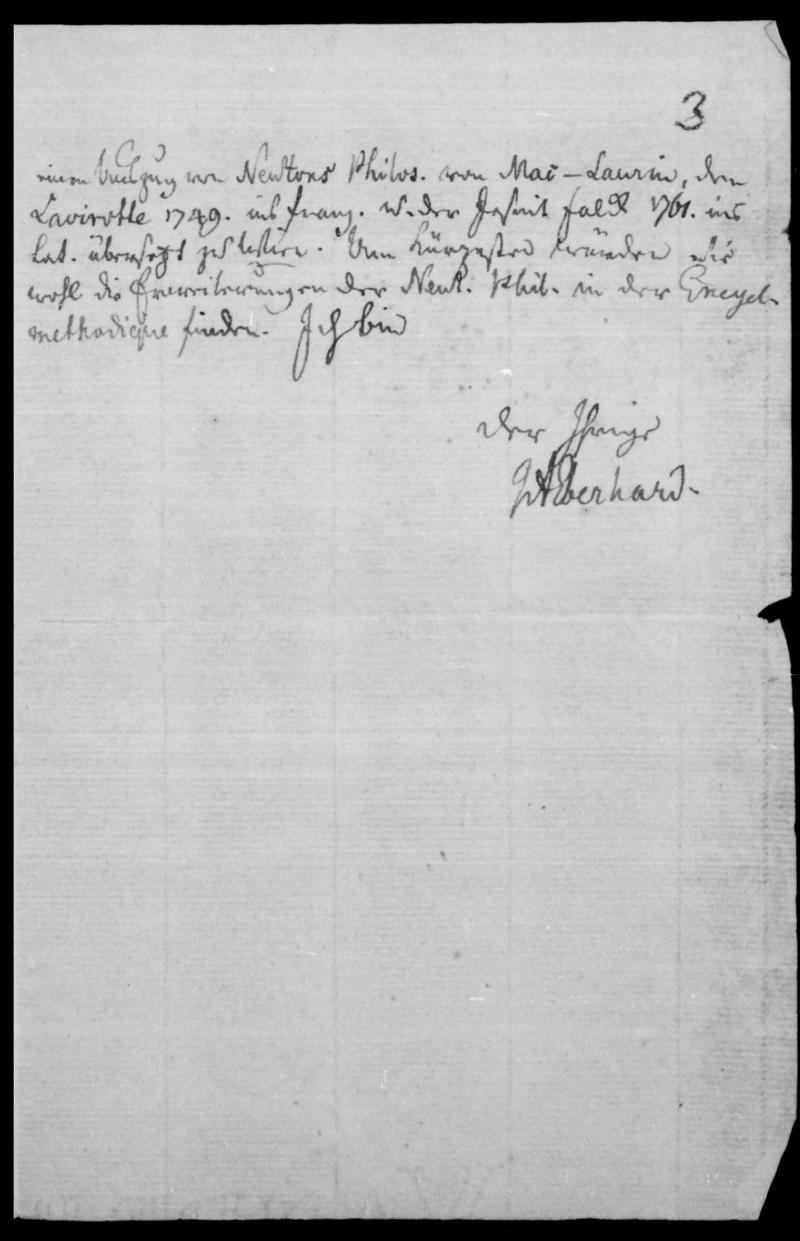 3
einen Auszug von Newtons Philos. von Mac-Laurin, den
Lavirotte 1749. ins franz. u. der Jesuit Falck 1761. ins
Lat. übersetzt zu lesen. Am kürzesten würden Sie
wohl die Erweiterungen der Neut. Phil. in der Encycl.
methodique finden. Ich bin
der Ihrige
JAEberhard.